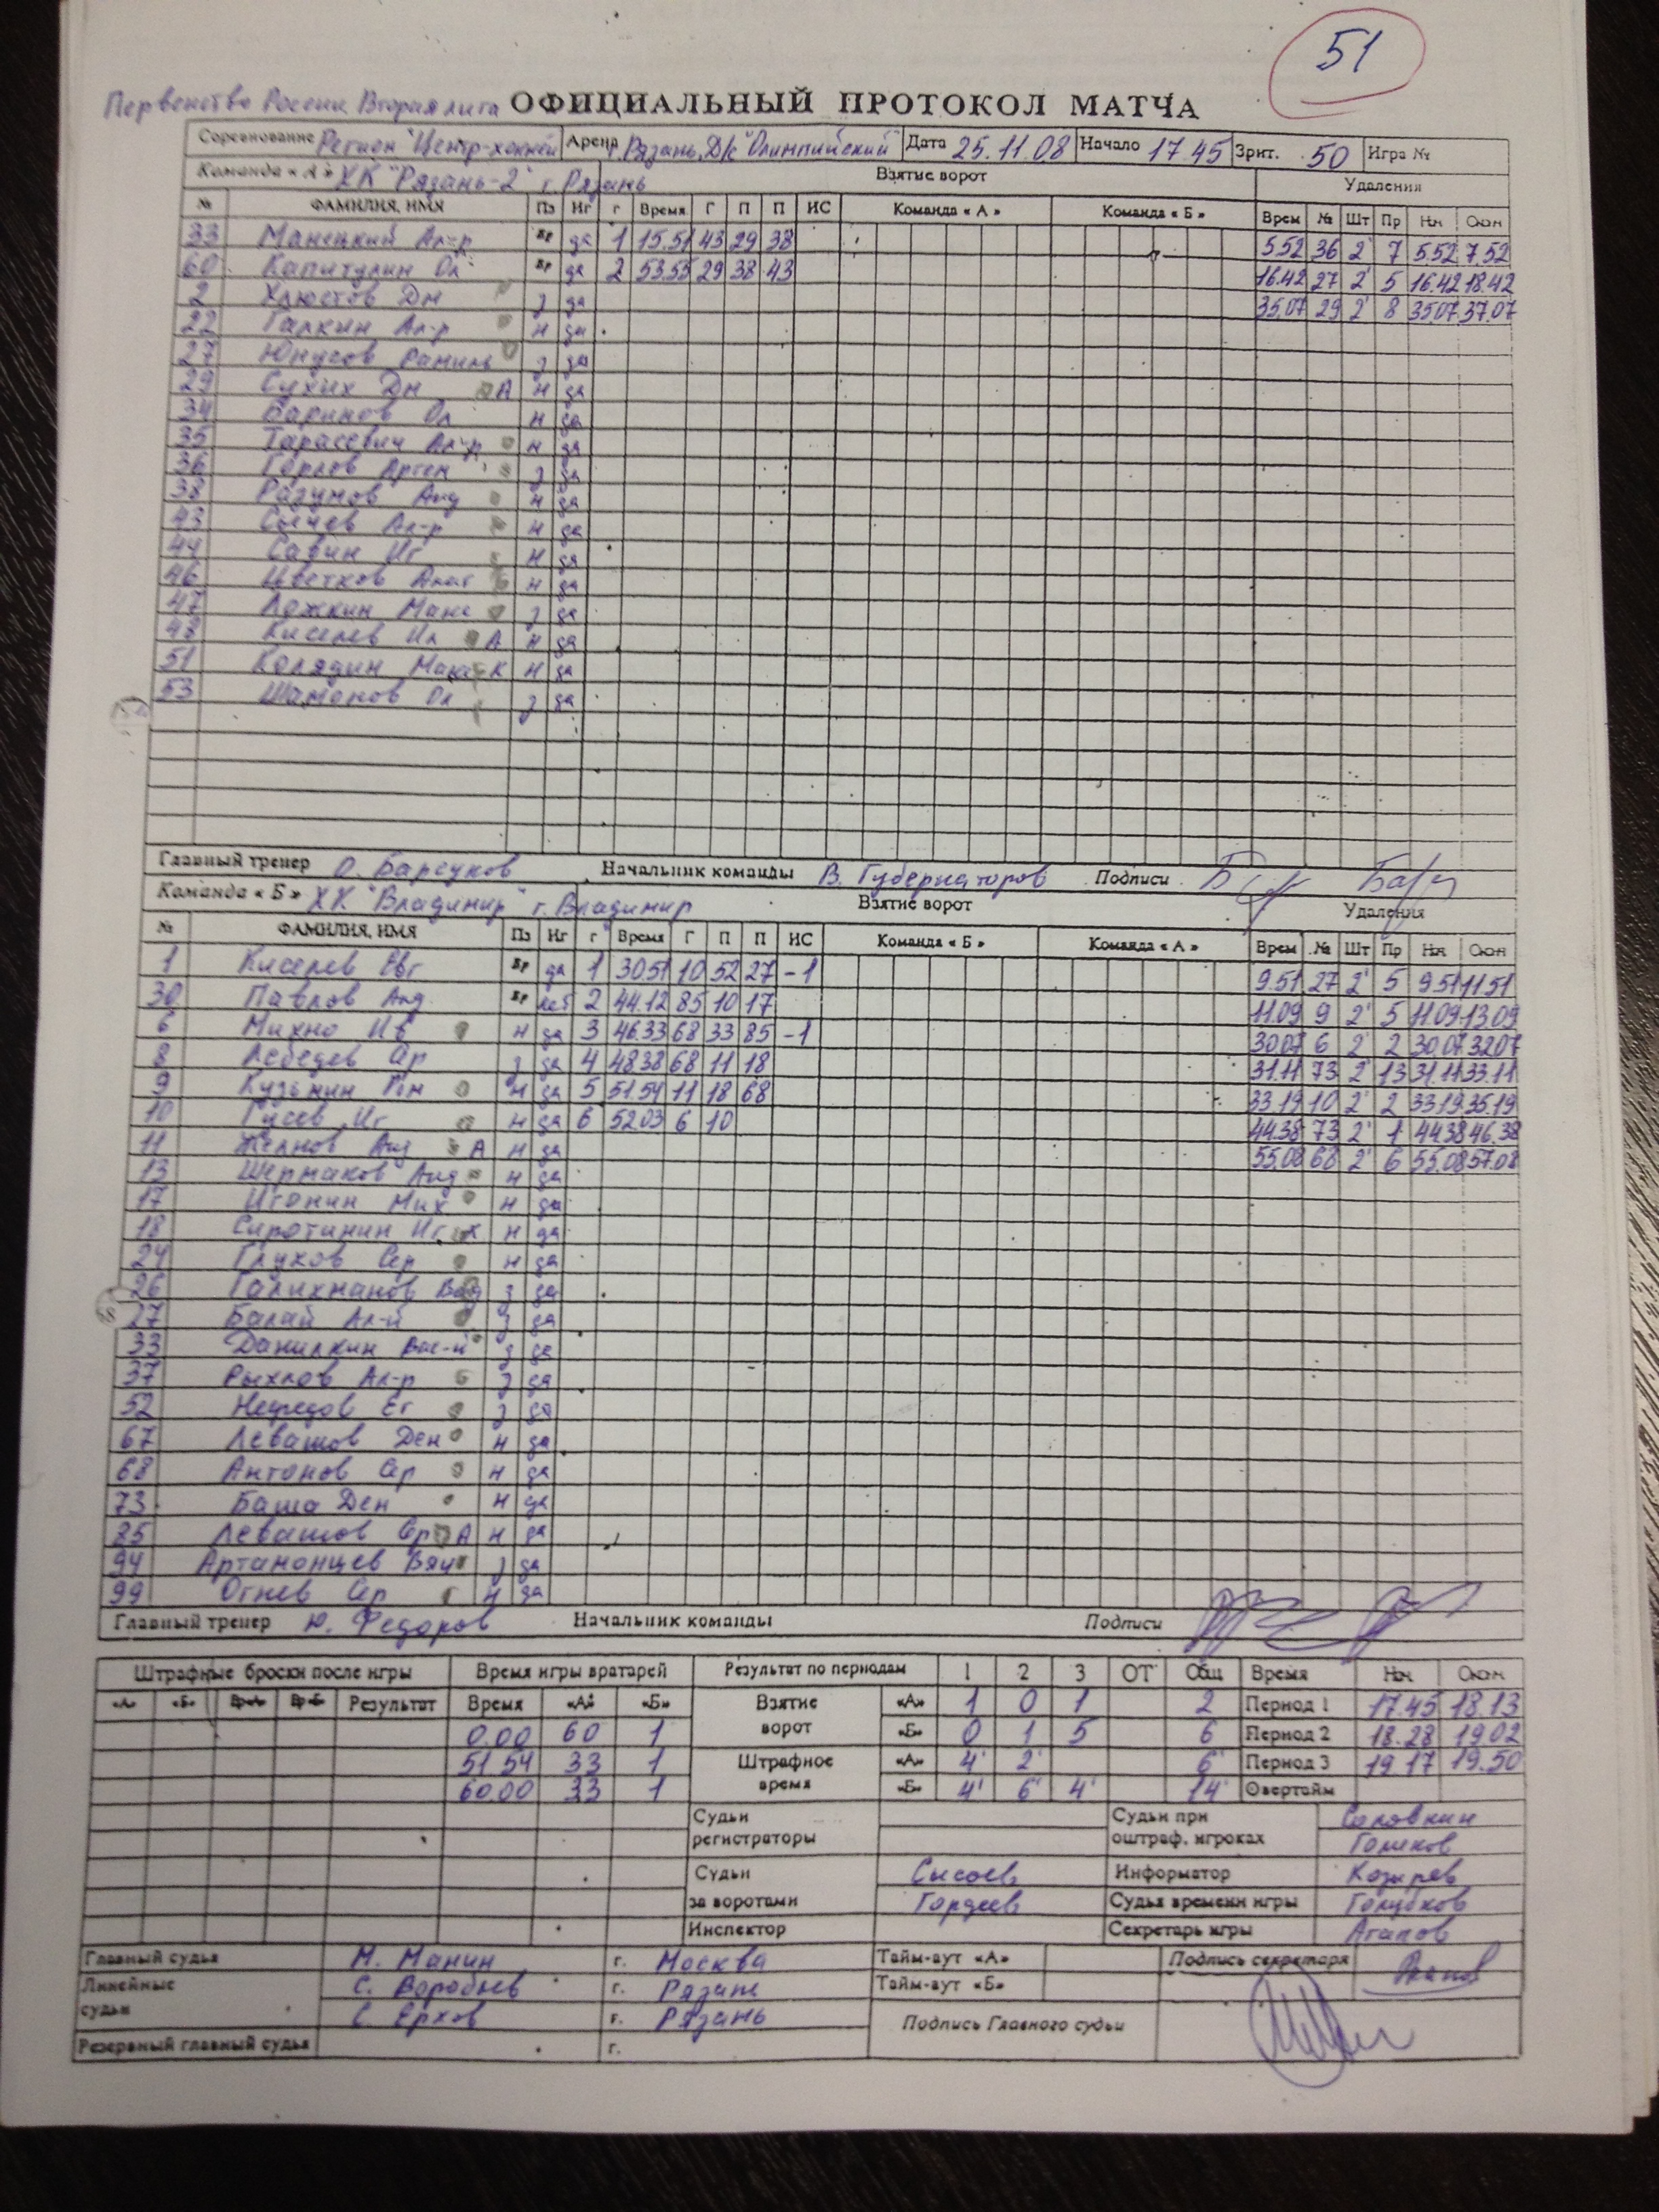 51
Первенство России Вторая лига ОФИЦИАЛЬНЫЙ ПРОТОКОЛ МАТЧА
Соревнование Регион "Центр-хоккей Арена г. Рязань, Д/с "Олимпийский" Дата 25.11.08 Начало 17.45 Зрит. 50 Игра №
Команда «А» ХК "Рязань-2" г. Рязань Взятие ворот Удаления
№ ФАМИЛИЯ, ИМЯ Пз Иг г Время Г П П ИС Команда «А» Команда «Б» Врем № Шт Пр Нач Окон
33 Манецкий Ал-р Вр да 1 15.51 43 29 38 5.52 36 2' 7 5.52 7.52
60 Капитулин Ол Вр да 2 53.55 29 38 43 16.42 27 2' 5 16.42 18.42
2 Хлюстов Дм з да 35.07 29 2' 8 35.07 37.07
22 Галкин Ал-р н да
27 Юнусов Рамиль з да
29 Сухих Дм А н да
34 Баринов Ол н да
35 Тарасевич Ал-р н да
36 Горлов Артем з да
38 Разумов Анд н да
43 Сычев Ал-р н да
44 Савин Иг н да
46 Цветков Анат н да
47 Ложкин Макс з да
48 Киселев Ил А н да
51 Колядин Макс К н да
53 Шамонов Ол з да
Главный тренер О. Барсуков Начальник команды В. Губернаторов Подписи
Команда «Б» ХК "Владимир" г. Владимир Взятие ворот Удаления
№ ФАМИЛИЯ, ИМЯ Пз Иг г Время Г П П ИС Команда «Б» Команда «А» Врем № Шт Пр Нач Окон
1 Киселев Евг Вр да 1 30.51 10 52 27 -1 9.51 27 2' 5 9.51 11.51
30 Павлов Анд Вр нет 2 44.12 85 10 17 11.09 9 2' 5 11.09 13.09
6 Михно Ив н да 3 46.33 68 33 85 -1 30.07 6 2' 2 30.07 32.07
8 Лебедев Ср з да 4 48.38 68 11 18 31.11 73 2' 13 31.11 33.11
9 Кузьмин Ром н да 5 51.54 11 18 68 33.19 10 2' 2 33.19 35.19
10 Гусев Иг н да 6 52.03 6 10 44.38 73 2' 1 44.38 46.38
11 Желнов Анд А н да 55.08 68 2' 6 55.08 57.08
13 Шермаков Анд н да
17 Игонин Мих н да
18 Сиротинин Иг К н да
24 Глухов Сер н да
26 Галихманов Вад з да
27 Балай Ал-й з да
33 Данилкин Вас-й з да
37 Рыхлов Ал-р з да
52 Нефедов Ег з да
67 Левашов Ден н да
68 Антонов Сер н да
73 Баша Ден н да
85 Левашов Сер А н да
94 Артамонцев Вяч з да
99 Огнев Сер н да
Главный тренер Ю. Федоров Начальник команды Подписи
Штрафные броски после игры Время игры вратарей Результат по периодам 1 2 3 ОТ Общ Время Нач Окон
«А» «Б» Вр«А» Вр«Б» Результат Время «А» «Б» Взятие ворот «А» 1 0 1 2 Период 1 17.45 18.13
0.00 60 1 «Б» 0 1 5 6 Период 2 18.28 19.02
51.54 33 1 Штрафное время «А» 4' 2' 6' Период 3 19.17 19.50
60.00 33 1 «Б» 4' 6' 4' 14' Овертайм
Судьи регистраторы Судьи при оштраф. игроках Соловкин
Голиков
Судьи за воротами Сысоев Информатор Козырев
Гордеев Судья времени игры Голубков
Инспектор Секретарь игры Агапов
Главный судья М. Манин г. Москва Тайм-аут «А» Подпись секретаря Агапов
Линейные судьи С. Воробьев г. Рязань Тайм-аут «Б»
С Ерхов г. Рязань Подпись Главного судьи
Резервный главный судья г.